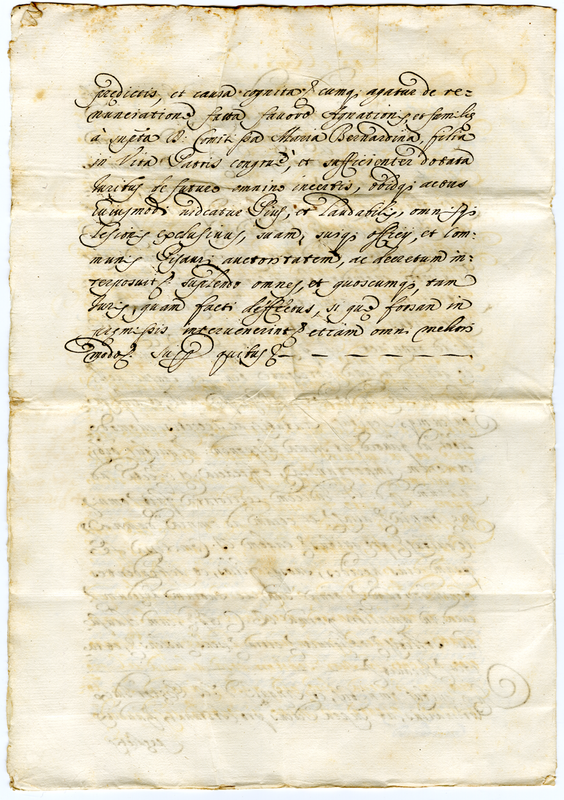 predictis, et causa cognita & cumq; agatur de re-
nunciatione facta favore Agnation, et familie
à supta D. Comit ssa Maria Bernardina filia
in Vita Patris congruè, et sufficienter dotata
Iuribus de futuro omnino incertis, obidq; actus
huiusmodi iudicatur Pius, et Laudabilis, omnisq;
Lesionis exclusivus, suam, suiq; officij, et Com-
munis Pisauri auctoritatem, ac decretum in-
terposuit & suplendo omnes, et quoscumq; tam
Iuris, quam facti deffectus, si qui forsan in
premissis intervenerint & etiam omni meliori
modo & Supr quibus &